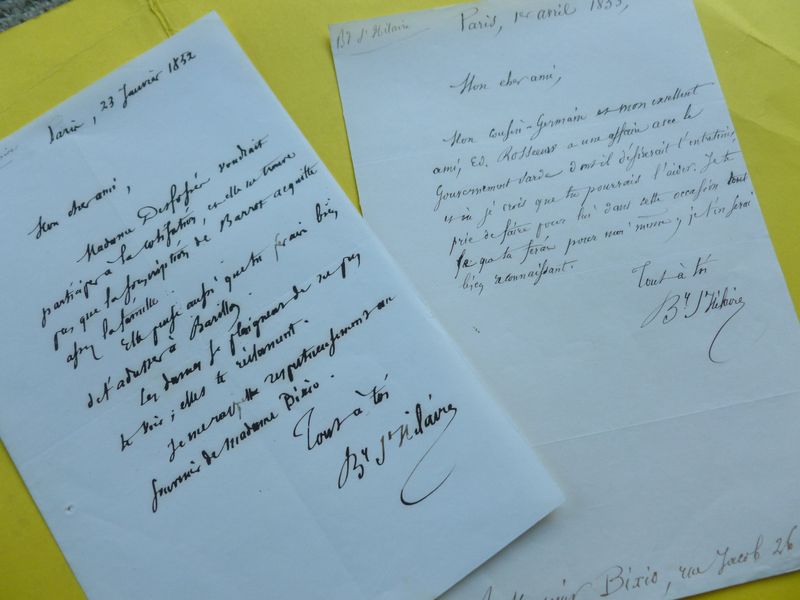 Paris, 23 Janvier 1852
Mon cher ami,
Madame Desfossés voudrait
participer à la cotisation, et elle ne trouve
pas que la souscription de Barrot acquitte
assez la famille.
Elle pense aussi que tu ferais bien
de t'adresser à
Les dames se plaignent de ne pas
te voir ; elles te réclament.
respectueusement au
souvenir de Madame Bixio.
Tout à toi
By St Hilaire
By St Hilaire
Paris, 1er avril 1853,
Mon cher ami,
Mon cousin-Germain et mon excellent
ami, Ed. Rosseeuw a une affaire avec le
Gouvernement Sarde dont il désirerait t'entretenir,
et où je crois que tu pourrais l'aider. Je te
prie de faire pour lui dans cette occasion tout
ce que tu ferais pour moi même ; je t'en serai
bien reconnaissant.
Tout à toi
By St Hilaire
Bixio, rue Jacob 26